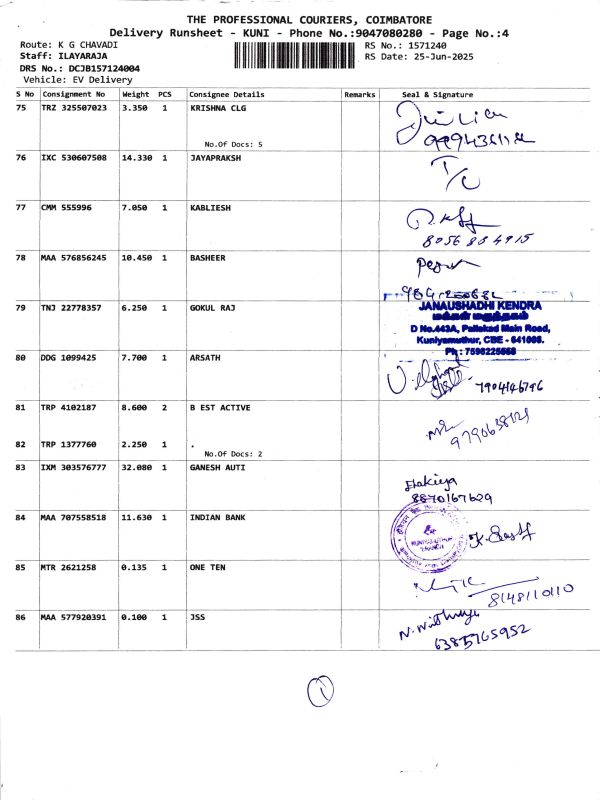 THE PROFESSIONAL COURIERS, COIMBATORE
Delivery Runsheet - KUNI - Phone No.:9047080280 - Page No.:4
Route: K G CHAVADI RS No.: 1571240
Staff: ILAYARAJA RS Date: 25-Jun-2025
DRS No.: DCJB157124004
Vehicle: EV Delivery
S No Consignment No Weight PCS Consignee Details Remarks Seal & Signature
75 TRZ 325507023 3.350 1 KRISHNA CLG
No.Of Docs: 5
76 IXC 530607508 14.330 1 JAYAPRAKSH T/C
77 CMM 555996 7.050 1 KABLIESH
8056884915
78 MAA 576856245 10.450 1 BASHEER
79 TNJ 22778357 6.250 1 GOKUL RAJ
JANAUSHADHI KENDRA
மக்கள் மருந்தகம்
D No.443A, Pallakad Main Road,
Kuniyamuthur, CBE - 641008.
Ph : 7598225558
80 DDG 1099425 7.700 1 ARSATH
7904146796
81 TRP 4102187 8.600 2 B EST ACTIVE
9790638121
82 TRP 1377760 2.250 1 .
No.Of Docs: 2
83 IXM 303576777 32.080 1 GANESH AUTI
8870167629
84 MAA 707558518 11.630 1 INDIAN BANK
KUNIYAMUTHUR
BRANCH
85 MTR 2621258 0.135 1 ONE TEN
8148110110
86 MAA 577920391 0.100 1 JSS
6385765952
1